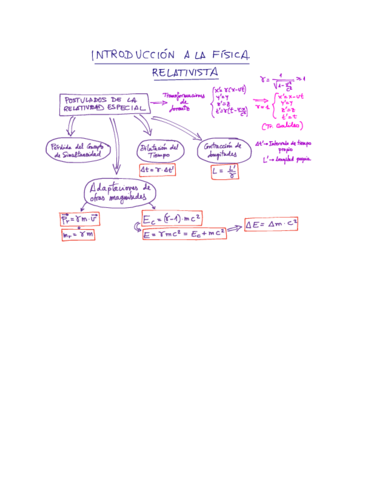 INTRODUCCIÓN A LA FÍSICA
RELATIVISTA
POSTULADOS DE LA
RELATIVIDAD ESPECIAL
Transformaciones
de
Lorentz
x'=γ(x-vt)
y'=y
z'=z
γ≈1
x'=x-vt
y'=y
z'=z
t'=t
(Tr. Galileo)
Pérdida del Concepto
de Simultaneidad
Dilatación del
Tiempo
Δt=γ·Δt'
Contracción de
Longitudes
L=L'/γ
Δt'→Intervalo de tiempo
propio
L'→Longitud propia
Adaptaciones de
otras magnitudes
m_r=γm
E_c=(γ-1)·mc²
E=γmc²=E_c+mc²
ΔE=Δm·c²